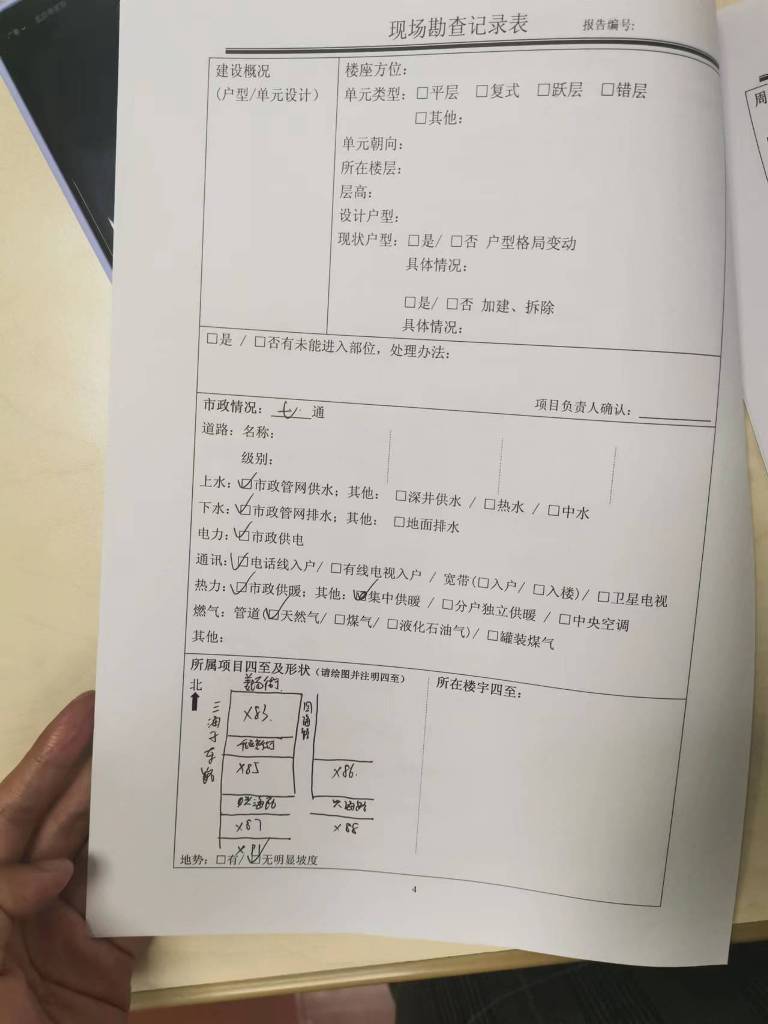 现场勘查记录表
报告编号:
建设概况
(户型/单元设计)
楼座方位:
单元类型: □平层 □复式 □跃层 □错层
□其他:
单元朝向:
所在楼层:
层高:
设计户型:
现状户型: □是/ □否 户型格局变动
具体情况:
□是/ □否 加建、拆除
具体情况:
□是 / □否有未能进入部位, 处理办法:
项目负责人确认:
市政情况: 七 通
道路: 名称:
级别:
上水: ☑市政管网供水; 其他: □深井供水 / □热水 / □中水
下水: ☑市政管网排水; 其他: □地面排水
电力: ☑市政供电
通讯: ☑电话线入户/ □有线电视入户 / 宽带(□入户/ □入楼)/ □卫星电视
热力: ☑市政供暖; 其他: ☑集中供暖 / □分户独立供暖 / □中央空调
燃气: 管道(☑天然气/ □煤气/ □液化石油气)/ □罐装煤气
其他:
所属项目四至及形状 (请绘图并注明四至)
所在楼宇四至:
北
X83.
X85
X86.
X87
X88
地势: □有/ ☑无明显坡度
4
周